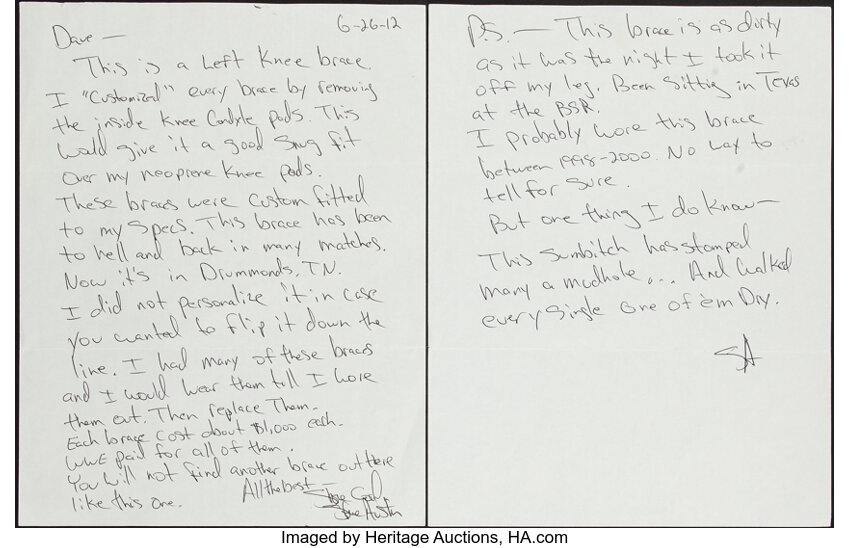 6-26-12
Dave —
This is a Left Knee brace.
I "Customized" every brace by removing
the inside Knee Condyle pads. This
would give it a good snug fit
over my neoprene knee pads.
These braces were custom fitted
to my specs. This brace has been
to hell and back in many matches.
Now it's in Drummonds, TN.
I did not personalize it in case
you wanted to flip it down the
line. I had many of these braces
and I would wear them till I wore
them out. Then replace Them.
Each brace cost about $1,000 each.
WWE paid for all of them.
You will not find another brace out there
like this one.
All the best —
Stone Cold
Steve Austin
P.S. — This brace is as dirty
as it was the night I took it
off my leg. Been sitting in Texas
at the BSR.
I probably wore this brace
between 1998-2000. No way to
tell for sure.
But one thing I do know —
This sumbitch has stomped
many a mudhole... And walked
every single one of em Dry.
SA
Imaged by Heritage Auctions, HA.com